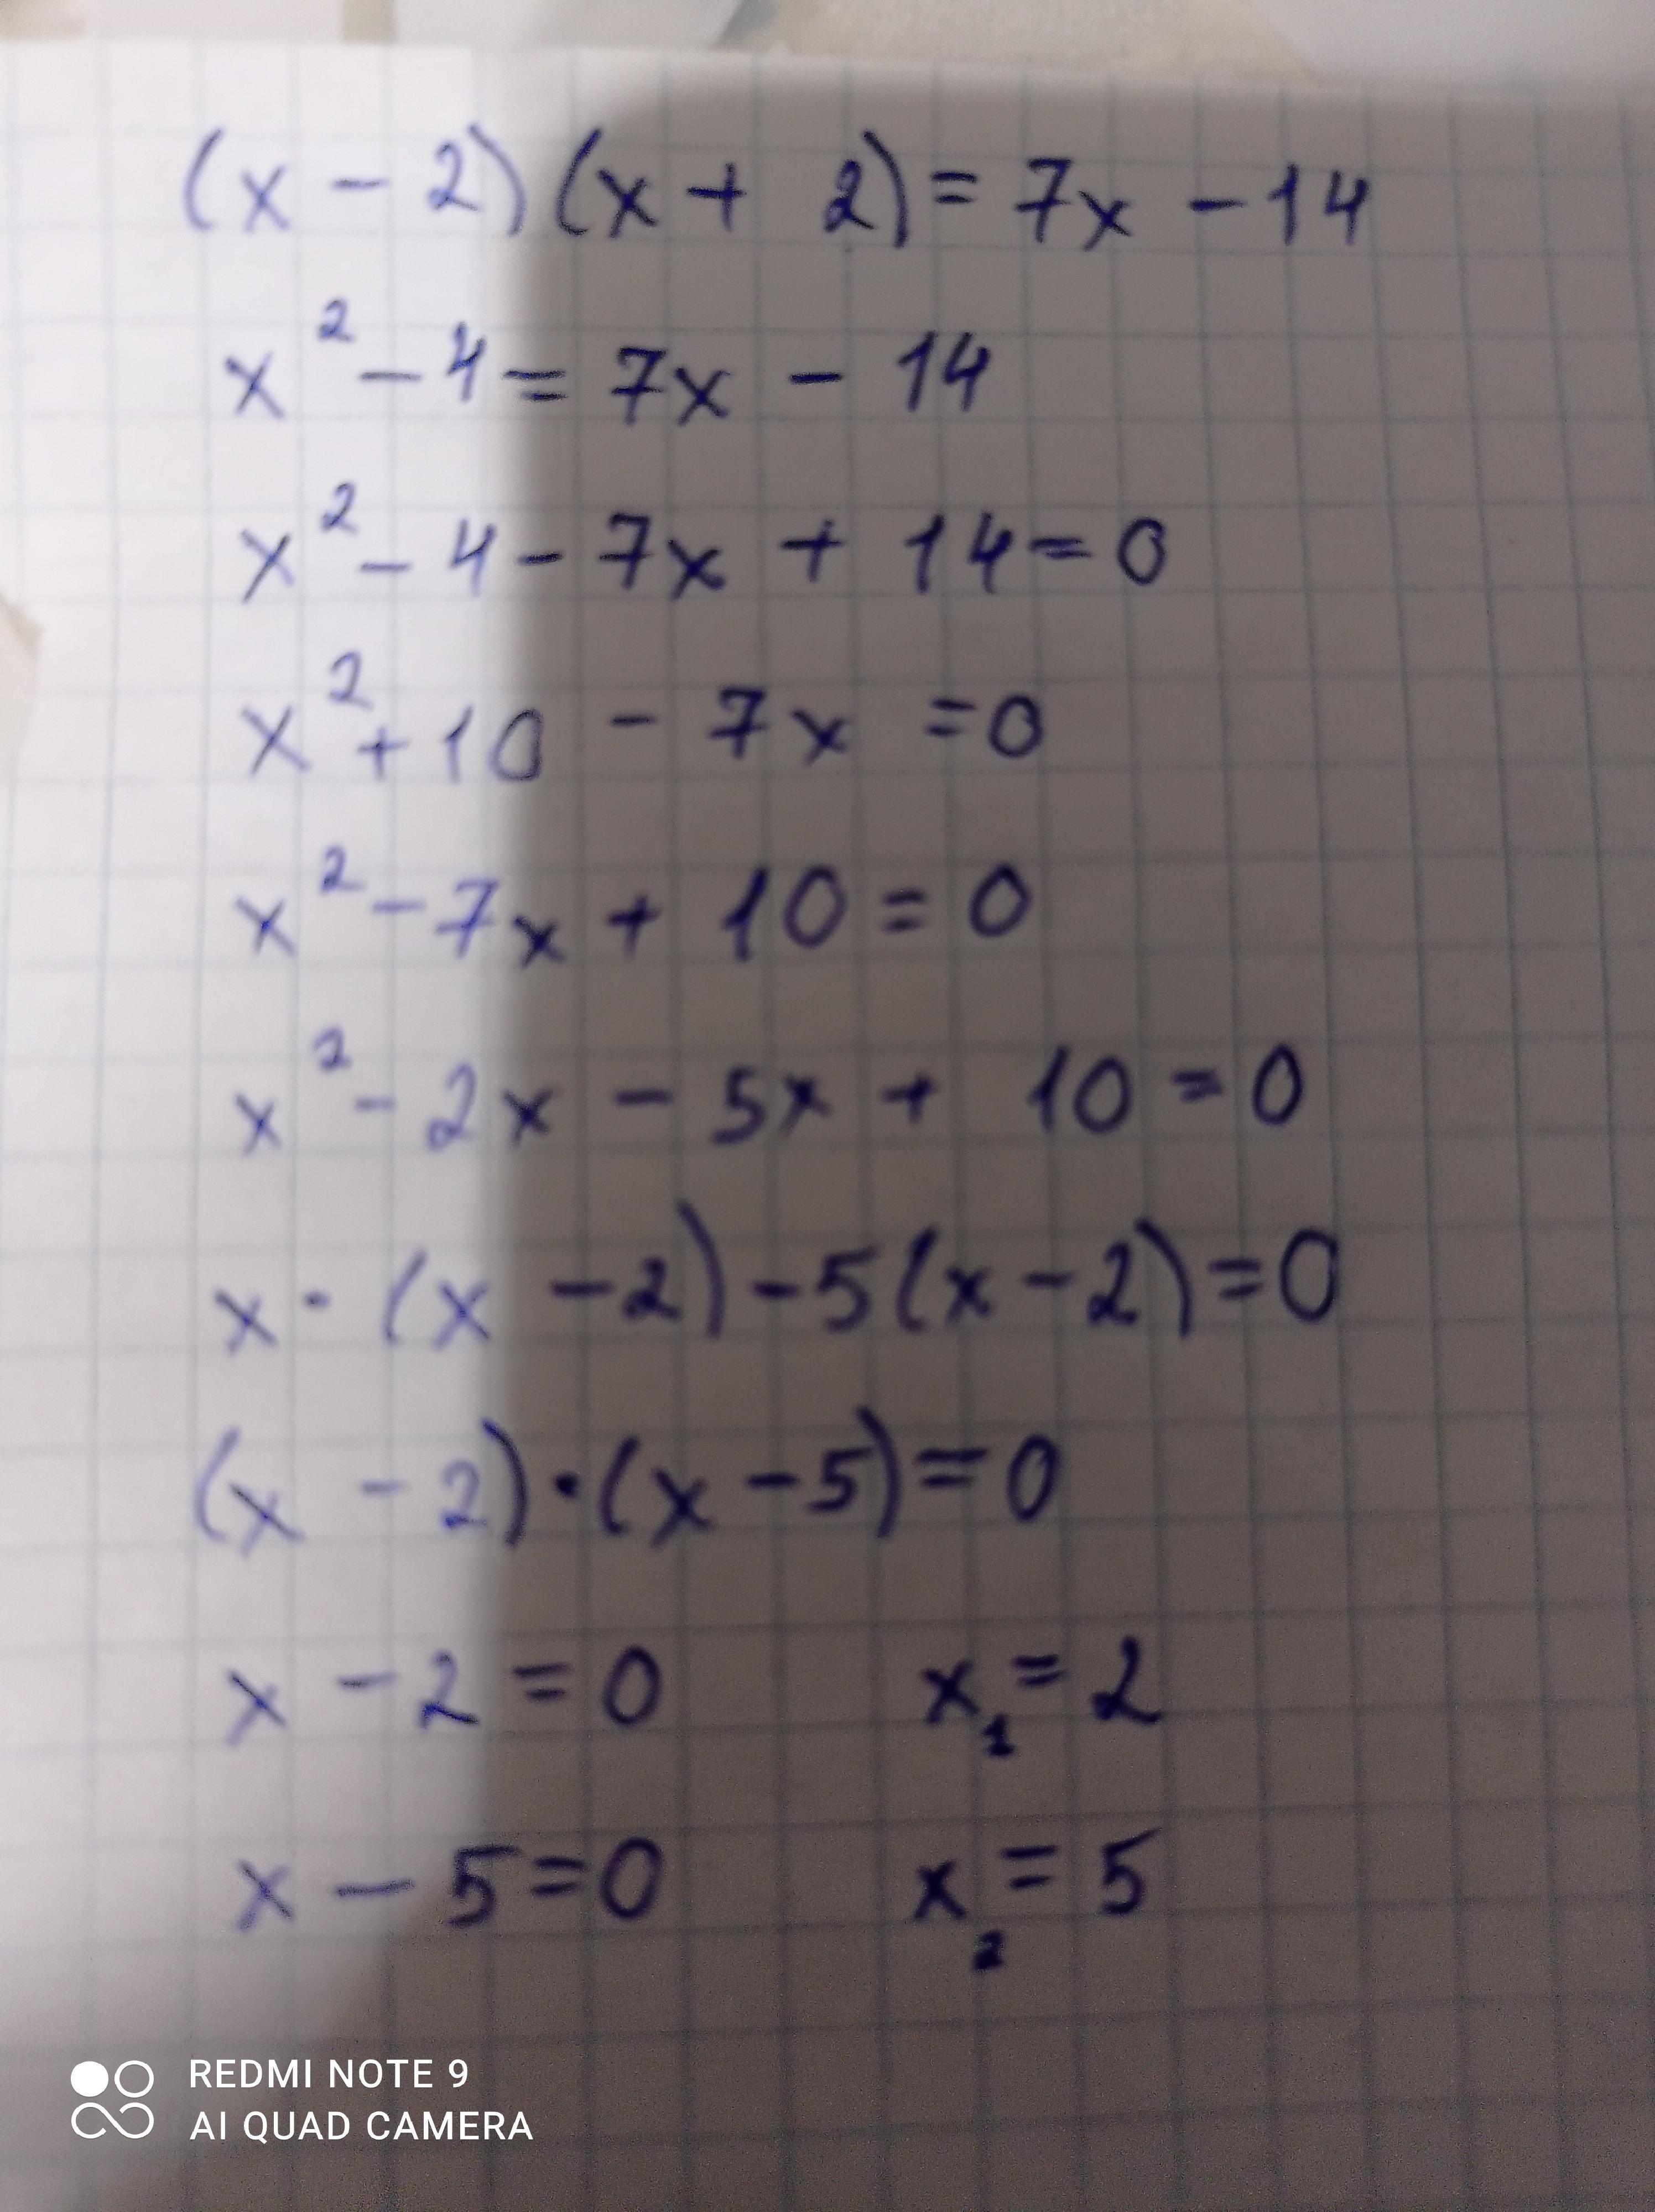 (x - 2)(x + 2) = 7x - 14
x² - 4 = 7x - 14
x² - 4 - 7x + 14 = 0
x² + 10 - 7x = 0
x² - 7x + 10 = 0
x² - 2x - 5x + 10 = 0
x · (x - 2) - 5(x - 2) = 0
(x - 2) · (x - 5) = 0
x - 2 = 0 x₁ = 2
x - 5 = 0 x₂ = 5
REDMI NOTE 9
AI QUAD CAMERA